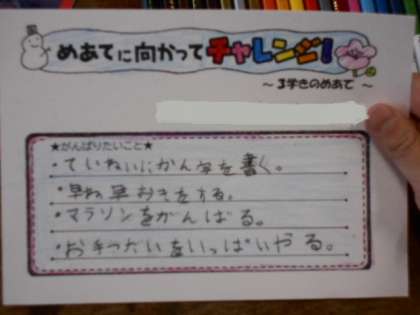 めあてに向かってチャレンジ!
～3学きのめあて～
★がんばりたいこと★
・ていねいにかん字を書く。
・早ね早おきをする。
・マラソンをがんばる。
・お手つだいをいっぱいやる。